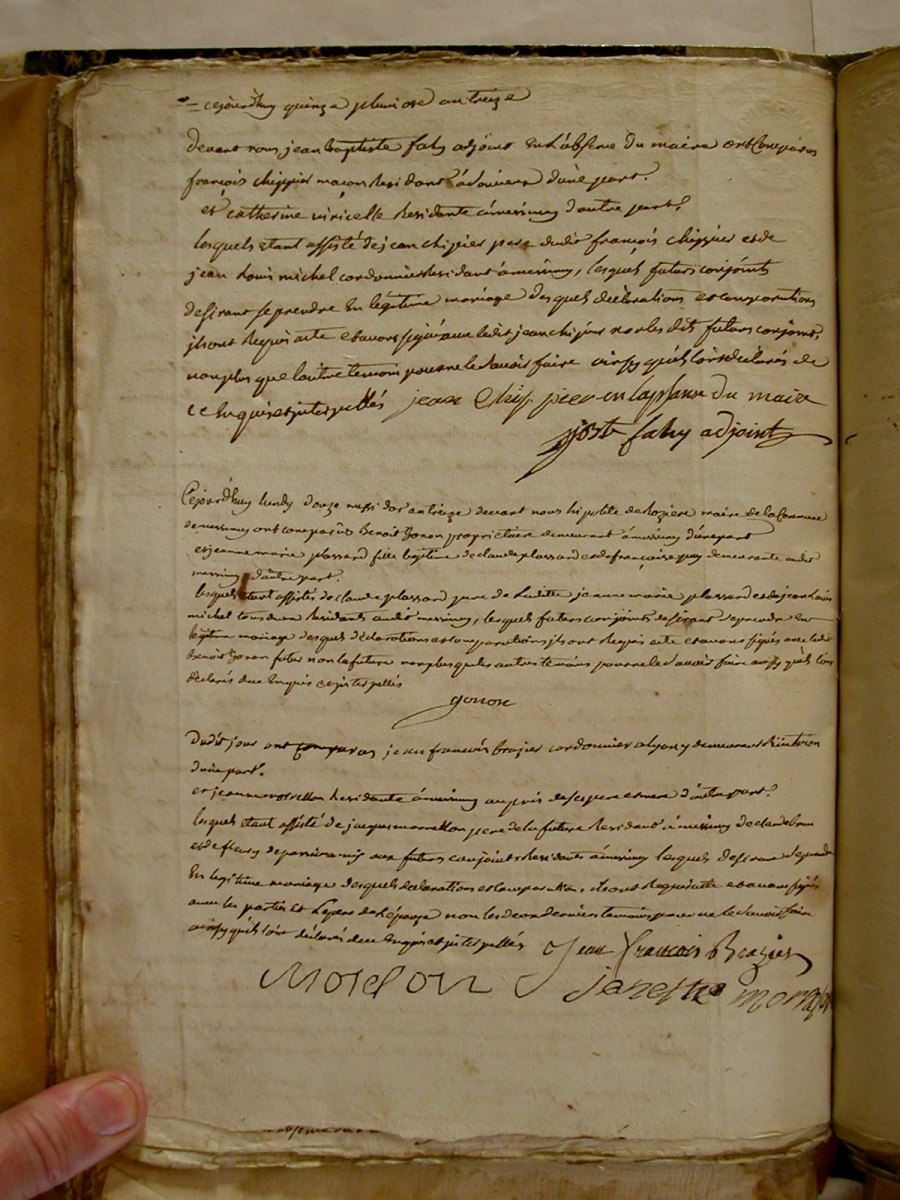 cejourdhuy quinze pluviose an treize
devant nous jean baptiste faby adjoint en l'absence du maire ont comparus
françois chippier maçon Residant à d'une part.
et catherine viricelle Residante à messimy d'autre part
lesquels etant assisté de jean chipier pere dudit françois chippier et de
jean Louis michel cordonnier Residant à messimy, lesquels futurs conjoints
desirant se prendre En legitime mariage desquels déclarations et comparutions
ils ont Requis acte et avons signé avec ledit jean chipier non les dits futurs conjoints,
non plus que lautre temoin pour ne le savoir faire ainsy qu'ils l'ont déclarés de
ce Enquis et interpellés jean Chippier en lapsance du maire
faby adjoint
Cejourdhuy lundy douze messidor an treize devant nous hipolite derozière maire de la Commune
de messimy ont comparûs Benoit Gonon propriettaire demeurant à messimy d'une part
et jeanne marie plassard fille legitime de claude plassard et de françoise puy demeurante audit
messimy d'autre part.
lesquels etant assistés de claude plassard pere de Ladite jeanne marie plassard et de jean Louis
michel tous deux Residants audit messimy, lesquels futurs conjoints desirant se prendre En
legitime mariage desquels déclarations et comparutions ils ont Requis acte et avons signés avec ledit
Benoit Gonon futur non la future non plus que les autres temoins pour ne le savoir faire ainsy qu'ils l'ont
déclarés de ce Enquis et interpellés
gonon
Dudit jour ont comparus jean françois brazier cordonnier a lyon y demeurant
d'une part.
et jeanne Residante à messimy auprès de ses pere et mere d'autre part
lesquels etant assisté de jacques pere de la future Residant à messimy de claude
et de fleury amis aux futurs conjoints Residants à messimy lesquels desirant se prendre
En legitime mariage desquels déclarations et comparution, ils ont Requis acte et avons signés
avec les parties et le pere de L'épouze non les deux derniers temoins pour ne le savoir faire
ainsy qu'ils l'ont déclarés de ce Enquis et interpellés Jean François Brazier